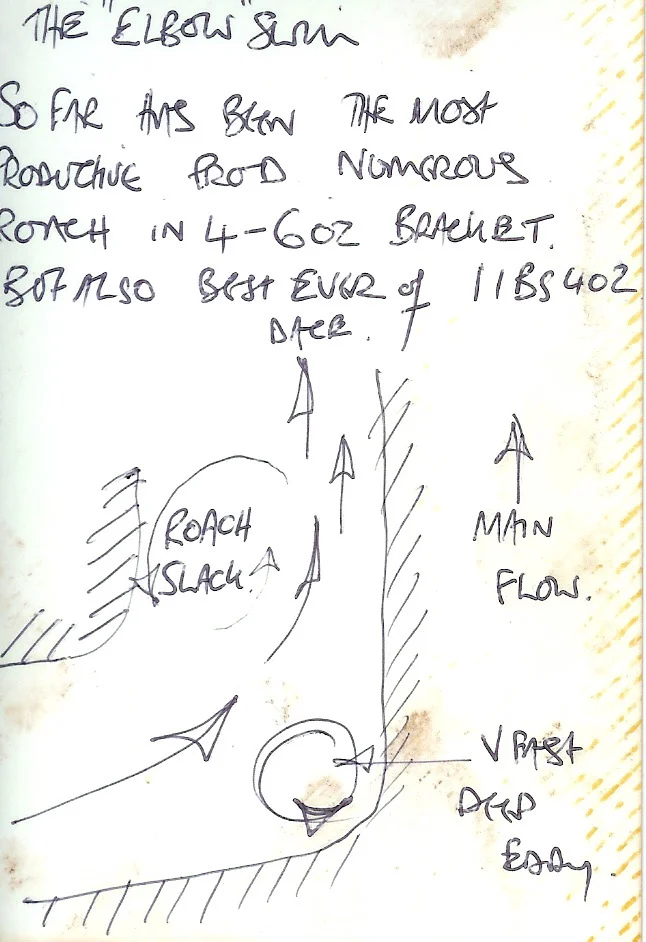 THE "ELBOW" SWIM
SO FAR HAS BEEN THE MOST
PRODUCTIVE PROD NUMEROUS
ROACH IN 4-6OZ BRACKET.
BUT ALSO BEST EVER of 1LBS 4OZ
DACE.
ROACH
SLACK.
MAIN
FLOW.
V FAST
DEEP
EDDY.